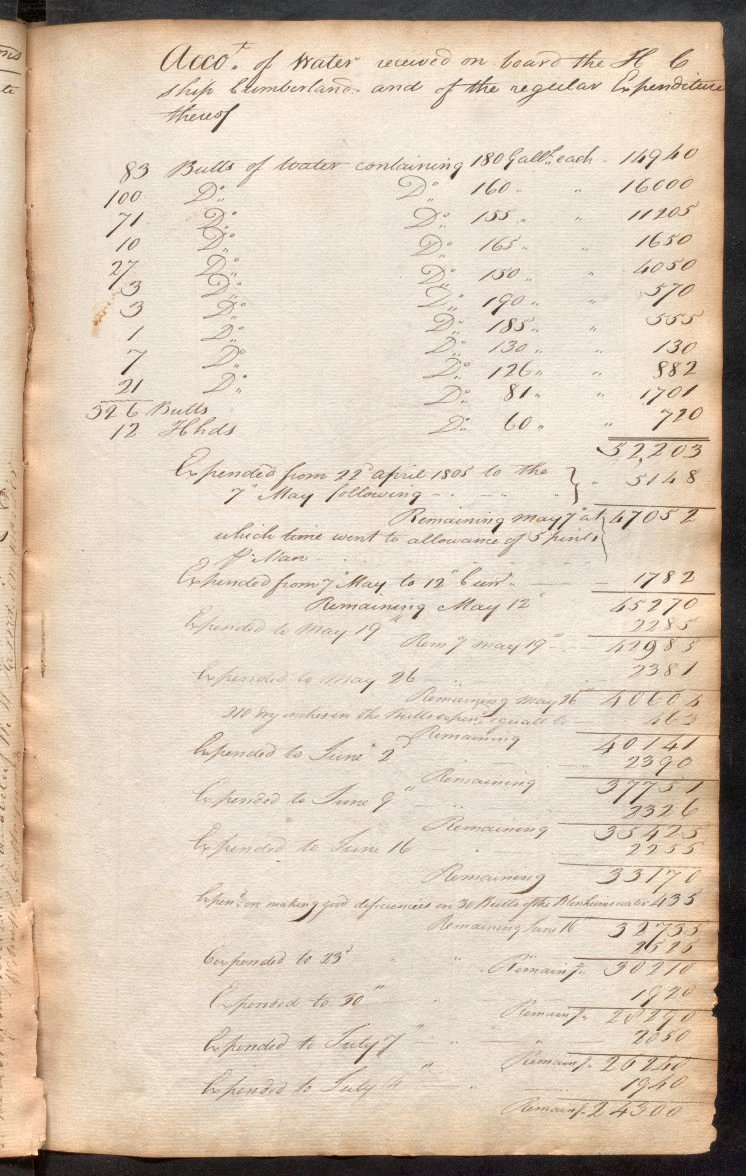 Acco.t of Water received on board the H C
ship Cumberland and of the regular Expenditure
thereof
83 Butts of water containing 180 Gall.s each - 14940
100 Do. Do. 160 " " 16000
71 Do. Do. 155 " " 11005
10 Do. Do. 165 " " 1650
27 Do. Do. 150 " " 4050
3 Do. Do. 190 " " 570
3 Do. Do. 185 " " 555
1 Do. Do. 130 " " 130
7 Do. Do. 126 " " 882
21 Do. Do. 81 " " 1701
326 Butts
12 Hhds Do. 60 " " 720
52,203
Expended from 22d april 1805 to the
7" May following - - - } " 5148
Remaining may 7" at 47052
which time went to allowance of 5 pints
Pr. Man
Expended from 7" May to 12" Curr.t - 1782
Remaining May 12" 45270
Expended to May 19" 2285
Rem.g may 19" - 42985
Expended to May 26 - 2381
Remaining May 26" 40604
210 dry inches in the Butts expen.d equal to - 463
Remaining 40141
Expended to June 2d 2390
Remaining 37751
Expended to June 9" 2326
Remaining 35425
Expended to June 16 2255
Remaining 33170
Expen.d on making good deficiencies on 30 Butts of the Blenheims water 435
Remaining June 16 32735
Expended to 23d " " 2525
Remain.g 30210
Expended to 30" 1920
Remain.g 28290
Expended to July 7" - " 2050
Remain.g 26240
Expended to July 14 " - " 1940
Remain.g 24300